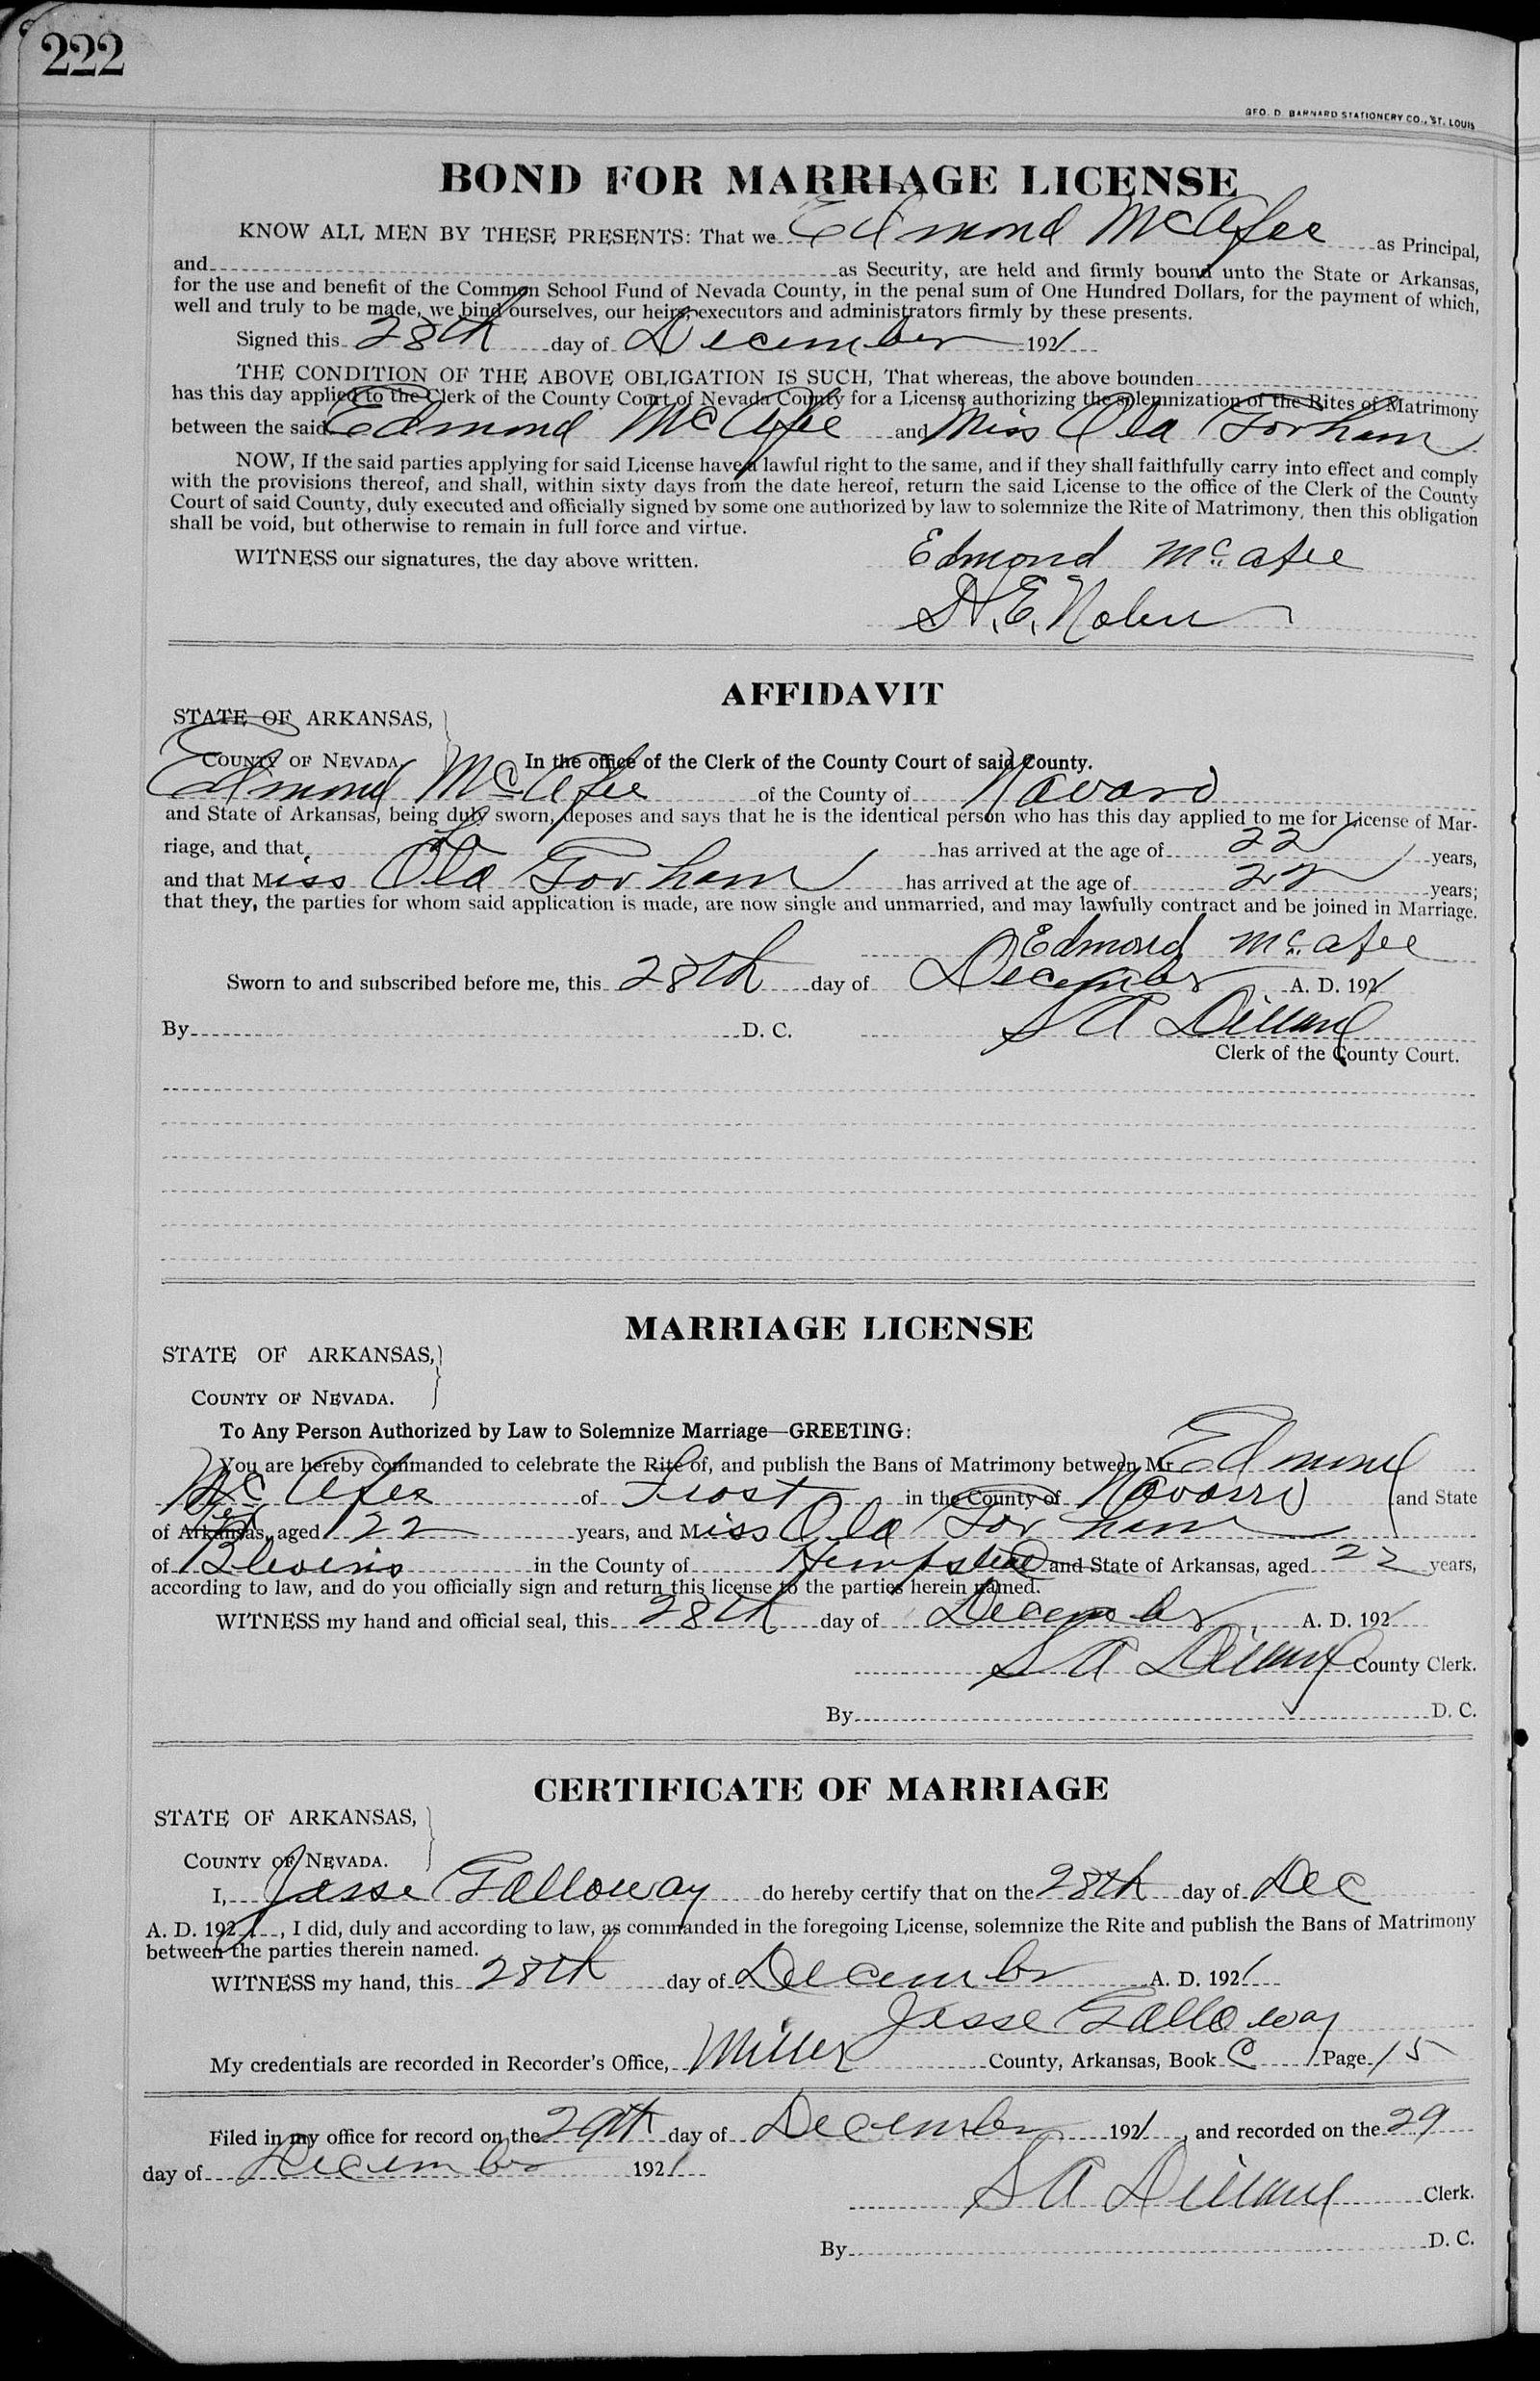 222
GEO. D. BARNARD STATIONERY CO., ST. LOUIS
BOND FOR MARRIAGE LICENSE
KNOW ALL MEN BY THESE PRESENTS: That we Edmond McAfee as Principal,
and as Security, are held and firmly bound unto the State or Arkansas,
for the use and benefit of the Common School Fund of Nevada County, in the penal sum of One Hundred Dollars, for the payment of which,
well and truly to be made, we bind ourselves, our heirs, executors and administrators firmly by these presents.
Signed this 28th day of December 1921
THE CONDITION OF THE ABOVE OBLIGATION IS SUCH, That whereas, the above bounden
has this day applied to the Clerk of the County Court of Nevada County for a License authorizing the solemnization of the Rites of Matrimony
between the said Edmond McAfee and Miss Ola Gorham
NOW, If the said parties applying for said License have a lawful right to the same, and if they shall faithfully carry into effect and comply
with the provisions thereof, and shall, within sixty days from the date hereof, return the said License to the office of the Clerk of the County
Court of said County, duly executed and officially signed by some one authorized by law to solemnize the Rite of Matrimony, then this obligation
shall be void, but otherwise to remain in full force and virtue.
WITNESS our signatures, the day above written.
Edmond McAfee
H. E. Nolen
AFFIDAVIT
STATE OF ARKANSAS,
COUNTY OF NEVADA. In the office of the Clerk of the County Court of said County.
Edmond McAfee of the County of Navaro
and State of Arkansas, being duly sworn, deposes and says that he is the identical person who has this day applied to me for License of Mar-
riage, and that has arrived at the age of 22 years,
and that Miss Ola Gorham has arrived at the age of 22 years;
that they, the parties for whom said application is made, are now single and unmarried, and may lawfully contract and be joined in Marriage.
Edmond McAfee
Sworn to and subscribed before me, this 28th day of December A. D. 1921
By D. C. S A Dillard
Clerk of the County Court.
MARRIAGE LICENSE
STATE OF ARKANSAS,
COUNTY OF NEVADA.
To Any Person Authorized by Law to Solemnize Marriage—GREETING:
You are hereby commanded to celebrate the Rite of, and publish the Bans of Matrimony between Mr. Edmond
McAfee of Frost in the County of Navarro and State
of Arkansas, Tex aged 22 years, and Miss Ola Gorham
of Blevins in the County of Hempstead and State of Arkansas, aged 22 years,
according to law, and do you officially sign and return this license to the parties herein named.
WITNESS my hand and official seal, this 28th day of December A. D. 1921
S A Dillard County Clerk.
By D. C.
CERTIFICATE OF MARRIAGE
STATE OF ARKANSAS,
COUNTY OF NEVADA.
I, Jesse Galloway do hereby certify that on the 28th day of Dec
A. D. 1921, I did, duly and according to law, as commanded in the foregoing License, solemnize the Rite and publish the Bans of Matrimony
between the parties therein named.
WITNESS my hand, this 28th day of December A. D. 1921
Jesse Galloway
My credentials are recorded in Recorder's Office, Miller County, Arkansas, Book C Page 15
Filed in my office for record on the 29th day of December 1921, and recorded on the 29
day of December 1921
S A Dillard Clerk.
By D. C.